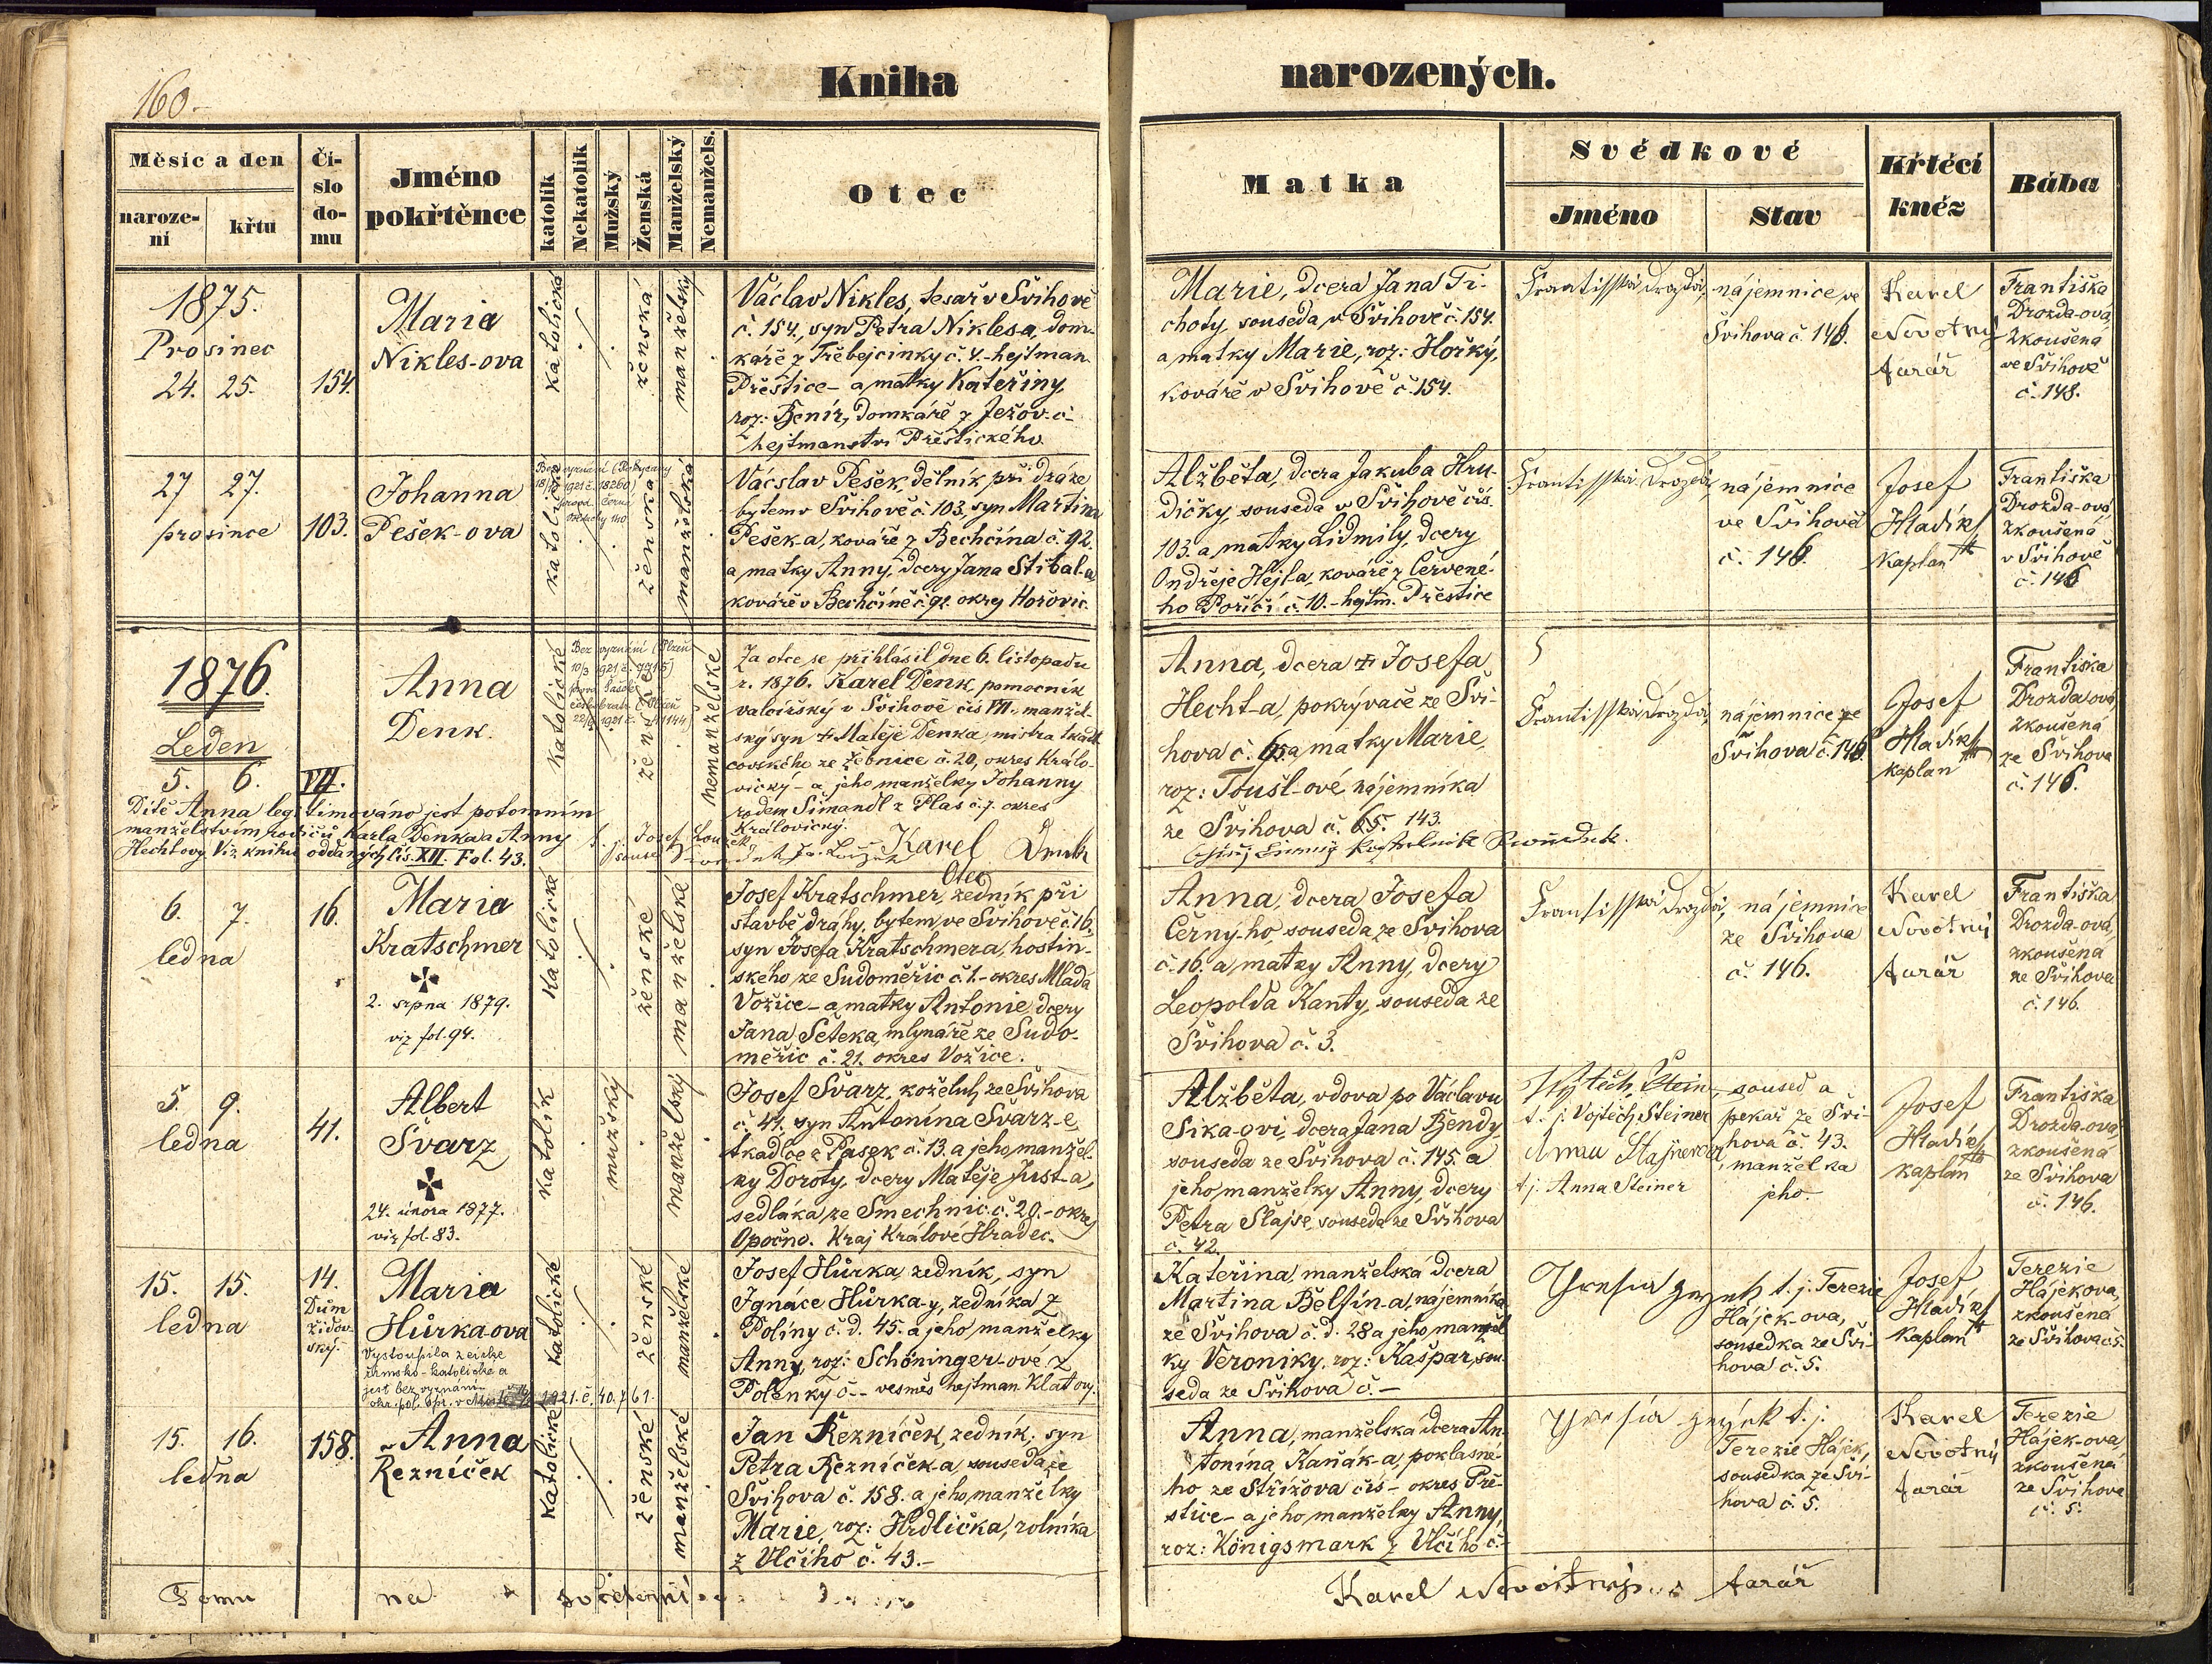 160.
Kniha narozených.
Měsíc a den
naroze-
ní
křtu
Čí-
slo
do-
mu
Jméno
pokřtěnce
katolík
Nekatolík
Mužský
Ženská
Manželský
Nemanžels.
Otec
Matka
Svědkové
Jméno
Stav
Křtěcí
kněz
Bába
1875.
Prosinec
24. 25.
154.
Maria
Nikles-ova
katolická
ženská
manželský
Václav Nikles, tesař v Švihově
č. 154., syn Petra Niklesa, dom-
káře z Třebejcinky č. 4.-hejtman
Přeštice- a matky Kateřiny,
roz: Benír, domkáře z Ježov-č-
hejtmanství Přeštického
Marie, dcera Jana Ti-
choty, souseda v Švihově č. 154.
a matky Marie, roz: Hořký,
kováře v Švihově č. 154.
Frantisska Drozda,
nájemnice ve
Švihova č. 146.
Karel
Novotný
farář
Františka
Drozda-ová,
zkoušená
ve Švihově
č. 148.
27 27.
prosince
103.
Johanna
Pešek-ova
katolická
Bez vyznání (Rokycany
18/10 1921 č. 18260)
ženská
manželská
Václav Pešek, dělník při dráze
bytem v Švihově č. 103. syn Martina
Pešek-a, kováře z Bechčína č. 92.
a matky Anny, dcery Jana Stibal-a
kováře v Bechčíně č. 92. okres Hořovic.
Alžběta, dcera Jakuba Hru-
dičky, souseda v Švihově čís.
103. a matky Lidmily, dcery
Ondřeje Hejl-a, kováře z Červené-
ho Poříčí č. 10.-hejtm. Přeštice
Frantisska Drozda,
nájemnice
ve Švihově
č. 146.
Josef
Hladík
Kaplan
Františka
Drozda-ová,
zkoušená
v Švihově
č. 146
1876.
Leden
5. 6.
VII.
Anna
Denk.
katolické
Bez vyznání (Plzeň
10/3 1921 č. 7715)
ženské
nemanželské
Za otce se přihlásil dne 6. listopadu
r. 1876. Karel Denk, pomocník
valcířský v Švihově čís VII., manžel-
ský syn † Matěje Denka, mistra tkadl-
covského ze Žebnice č. 20, okres Králo-
vický - a jeho manželky Johanny
rodem Šimandl z Plas č. 7. okres
Královický.
Karel Denk
Otec
Dítě Anna legitimováno jest potomním
manželstvím rodičů Karla Denka a Anny
Hechtovy. Viz knihu oddaných čís. XII. Fol. 43.
Anna, dcera † Josefa
Hecht-a, pokrývače ze Švi-
hova č. 65. a matky Marie,
roz: Toušl-ové, nájemníka
ze Švihova č. 65. 143.
Frantisska Drozda,
nájemnice ze
Švihova č. 146.
Josef
Hladík
kaplan
Františka
Drozda ová,
zkoušená
ze Švihova
č. 146.
6. 7.
ledna
16.
Maria
Kratschmer
2. srpna 1879.
viz fol. 94.
katolické
ženské
manželské
Josef Kratschmer, zedník při
stavbě dráhy, bytem ve Švihově č. 16,
syn Josefa Kratschmera, hostin-
ského ze Sudoměřic č. 1.-okres Mladá
Vožice-a matky Antonie, dcery
Jana Šeteka, mlynáře ze Sudo-
měřic č. 21. okres Vožice.
Anna, dcera Josefa
Černy-ho, souseda ze Švihova
č. 16. a matky Anny, dcery
Leopolda Kanty, souseda ze
Švihova č. 3.
Frantisska Drozda,
nájemnice
ze Švihova
č. 146.
Karel
Novotný
farář
Františka
Drozda-ová,
zkoušená
ze Švihova
č. 146.
5. 9.
ledna
41.
Albert
Švarz
24. února 1877.
viz fol. 83.
katolík
mužský
manželský
Josef Švarz, koželuh ze Švihova
č. 41. syn Antonína Švarz-e,
tkadlce z Pasek č. 13. a jeho manžel-
ky Doroty, dcery Matěje Just-a,
sedláka ze Směchnic č. 20.-okres
Opočno. Kraj Králové Hradec.
Alžběta, vdova po Václavu
Sika-ovi, dcera Jana Bendy,
souseda ze Švihova č. 145. a
jeho manželky Anny, dcery
Petra Šlajse, souseda ze Švihova
č. 42.
t. j. Vojtěch Steiner
t. j. Anna Steiner
soused a
pekař ze Švi-
hova č. 43.
manželka
jeho.-
Josef
Hladík
kaplan
Františka
Drozda-ová,
zkoušená
ze Švihova
č. 146.
15. 15.
ledna
14.
Dům
židov-
ský.
Maria
Hůrka-ova
Vystoupila z církve
římsko-katolické a
jest bez vyznání-
1921. č. 40.761.
katolické
ženské
manželské
Josef Hůrka, zedník, syn
Ignáce Hůrka-y, zedníka z
Políny č. d. 45. a jeho manželky
Anny, roz: Schöninger-ové z
Polenky č-- vesměs hejtman. Klatovy.
Kateřina, manželská dcera
Martina Bělfín-a, nájemníka
ze Švihova č. d. 28 a jeho manžel
ky Veroniky, roz: Kašpar, sou-
seda ze Švihova č.-
t. j. Terezie
Hájek-ova,
sousedka ze Švi-
hova č. 5.
Josef
Hladík
Kaplan
Terezie
Hájekova,
zkoušená
ze Švihova č. 5.
15. 16.
ledna
158.
Anna
Řezníček
katolické
ženské
manželské
Jan Řezníček, zedník, syn
Petra Řezníček-a, souseda ze
Švihova č. 158. a jeho manželky
Marie, roz: Hrdlička, rolníka
z Vlčího č. 43.-
Anna, manželská dcera An-
tonína Kaňák-a, poklasné-
ho ze Střížova čís- okres Pře-
štice-a jeho manželky Anny,
roz: Königsmark z Vlčího č.-
t. j.
Terezie Hájek,
sousedka ze Švi-
hova č. 5.
Karel
Novotný
farář
Terezie
Hájek-ova,
zkoušená
ze Švihova
č. 5.
Tomu na svědomí
Karel Novotný farář